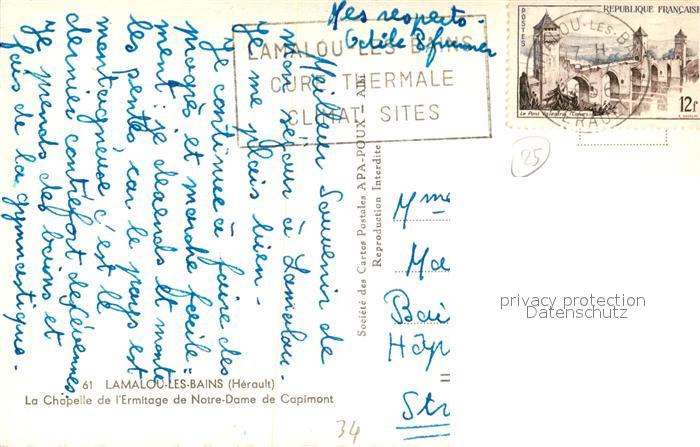 Mes respects -
Odile Brunner
LAMALOU-LES-BAINS
CURE THERMALE
CLIMAT SITES
POSTES
REPUBLIQUE FRANÇAISE
12F
Le Pont Valentré, Cahors
25
Meilleur Souvenir de
mon séjour à Lamalou.
Je me plais bien -
Je continue à faire des
progrès et marche facile=
ment : je descends et monte
les pentes car le pays est
montagneux, c'est le
dernier contrefort des Cévennes.
Je prends des bains et
fais de la gymnastique.
Société des Cartes Postales APA-POUX - ALBI
Reproduction Interdite
Mme
Ma
Hôp
Str
privacy protection
Datenschutz
61 LAMALOU-LES-BAINS (Hérault)
La Chapelle de l'Ermitage de Notre-Dame de Capimont
34